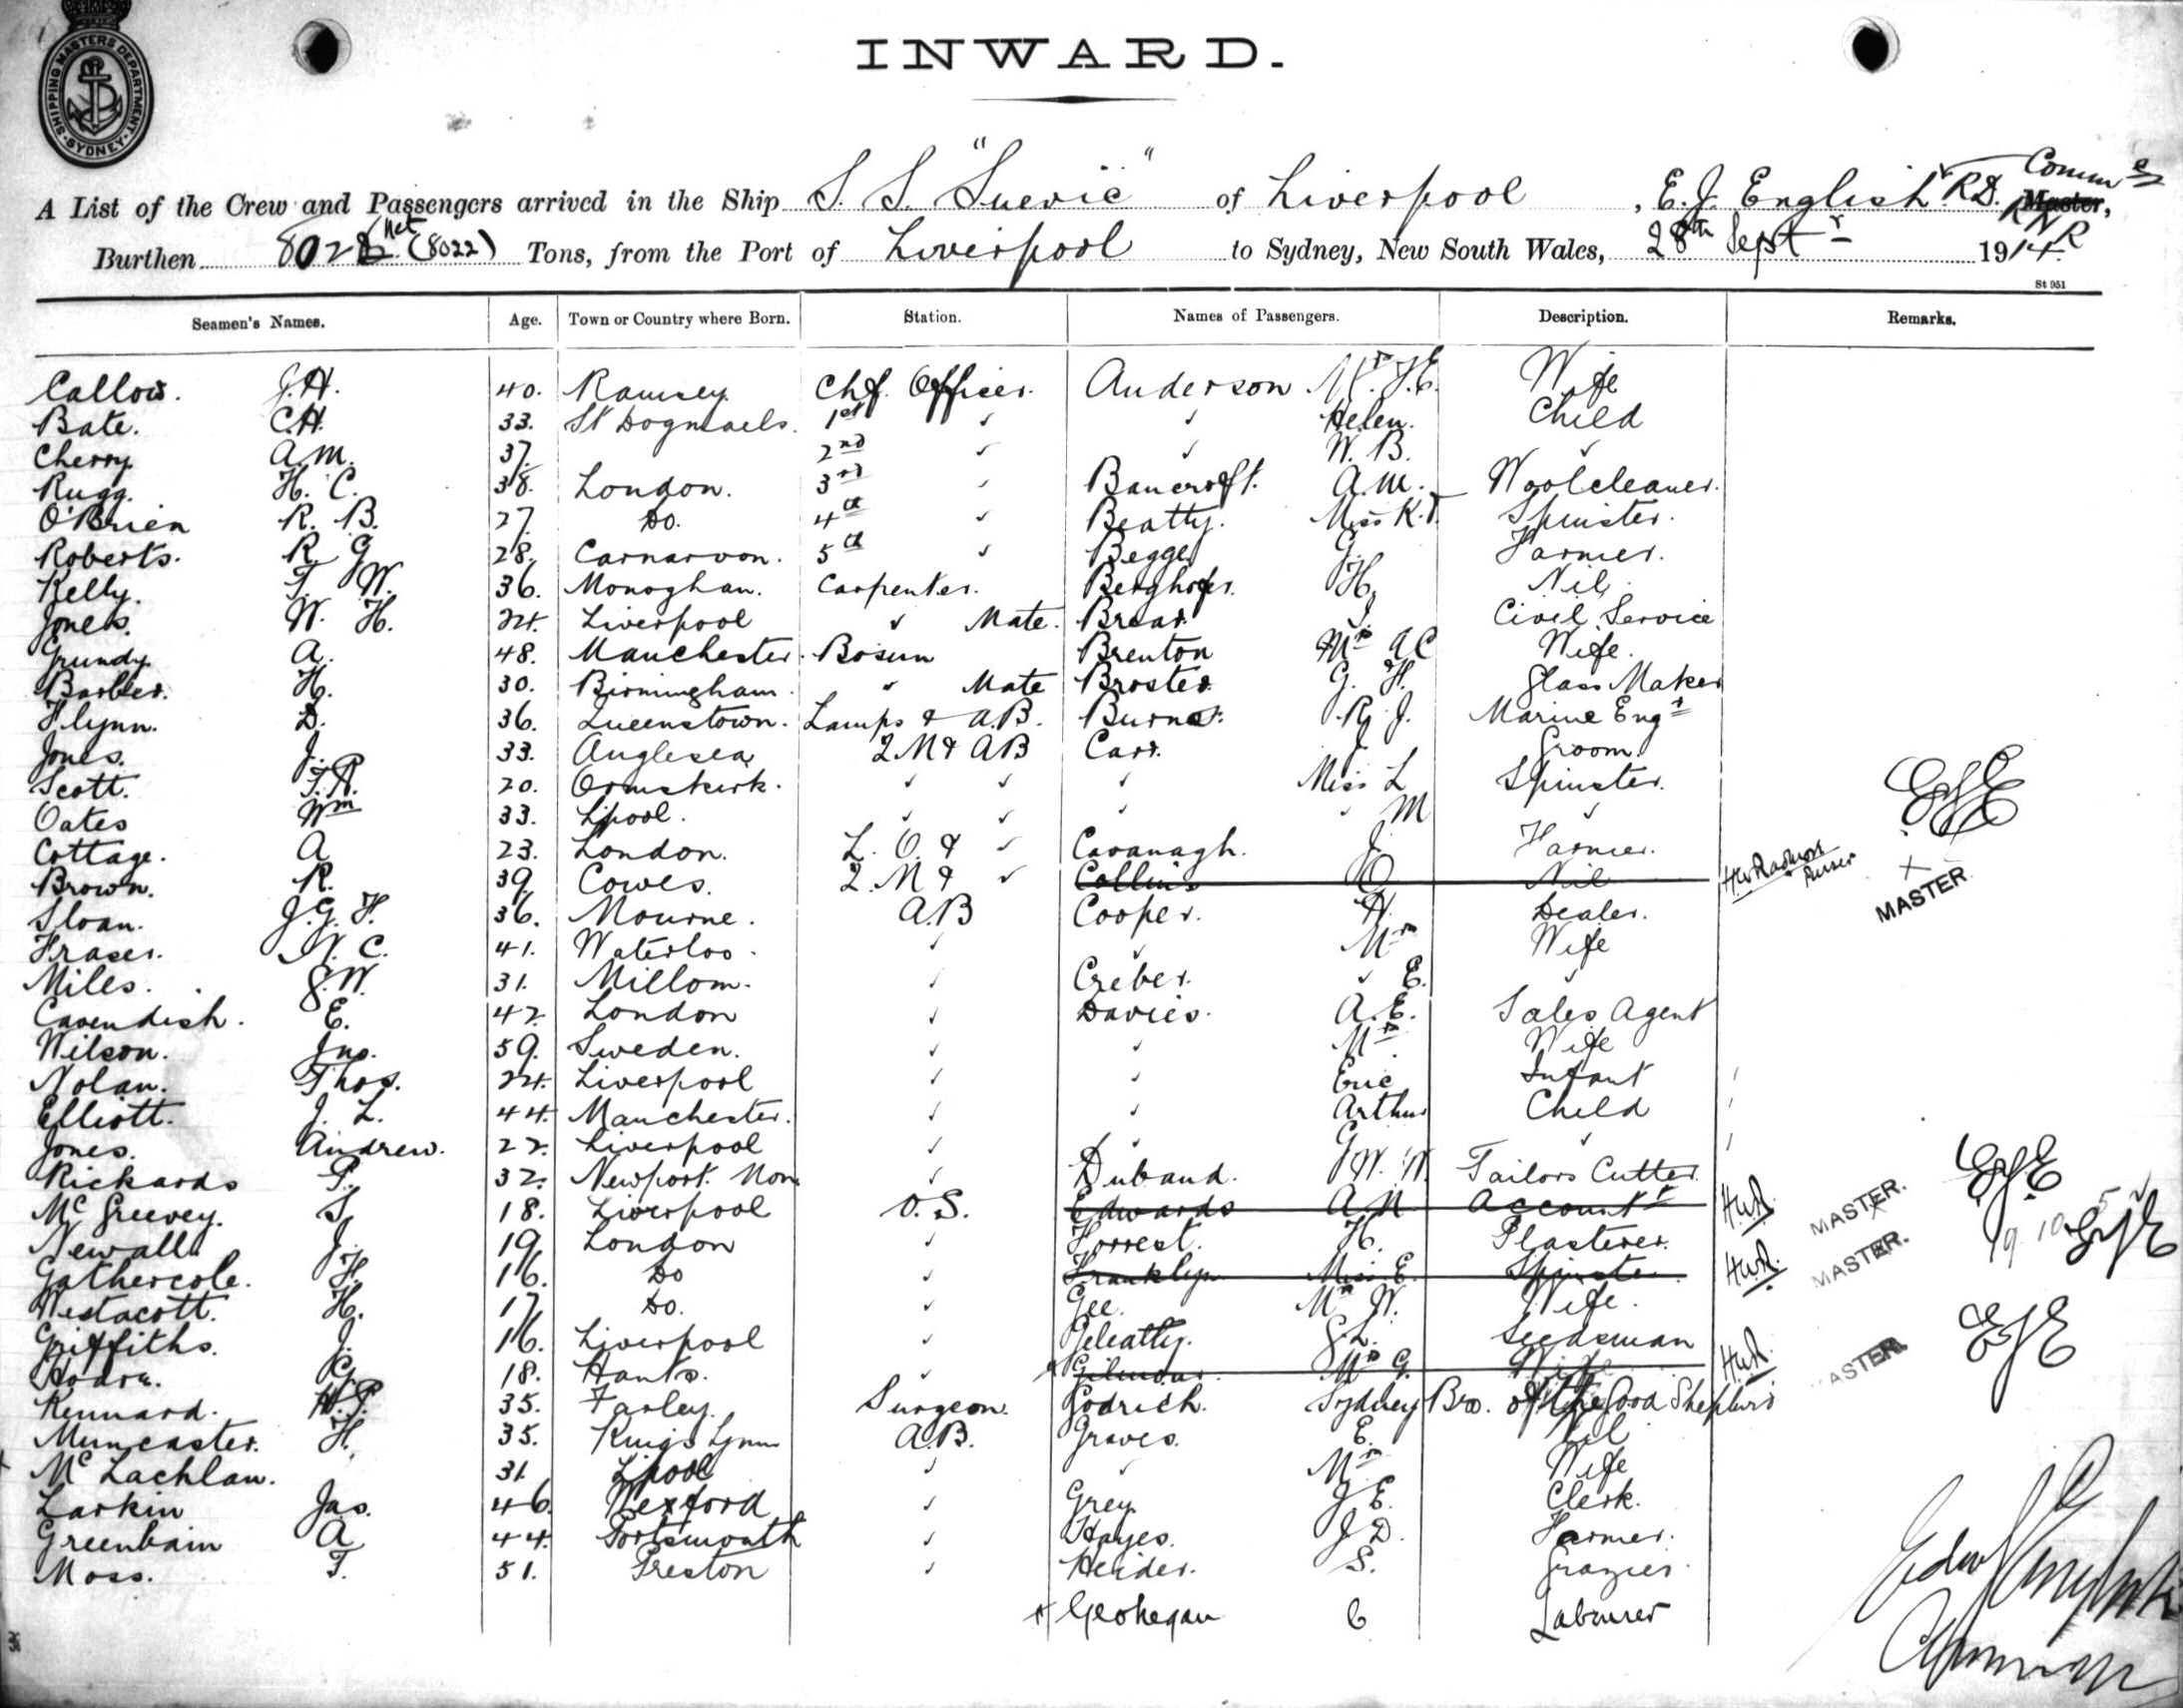 SHIPPING MASTERS DEPARTMENT · SYDNEY ·
INWARD.
A List of the Crew and Passengers arrived in the Ship S. S. "Suevic" of Liverpool, E. J. English RD. RNR Master, Comm
Burthen 8022 Net (8022) Tons, from the Port of Liverpool to Sydney, New South Wales, 28th Septr 1914.
St 951
Seamen's Names. Age. Town or Country where Born. Station. Names of Passengers. Description. Remarks.
Callow. J.H. 40. Ramsey. Chf. Officer. Anderson Mrs J.E. Wife
Bate. C.H. 33. St Dogmaels. 1st " " Helen. Child
Cherry A.M. 37. 2nd " " W. B. "
Rugg. H. C. 38. London. 3rd " Bancroft. A.M. Woolcleaner.
O'Brien R. B. 27. Do. 4th " Beatty. Miss K.T. Spinster.
Roberts. R. G 28. Carnarvon. 5th " Begge G. Farmer.
Kelly. T. W. 36. Monoghan. Carpenter. Berghofer. H. Nil.
Jones. W. H. 24. Liverpool " Mate. Brear. J. Civil Service
Grundy A. 48. Manchester. Bosun Brenton Mrs A C Wife.
Barber. H. 30. Birmingham. " Mate Broster G. H. Glass Maker
Flynn. D. 36. Queenstown. Lamps & A.B. R. J. Marine Engr
Jones. J. 33. Anglesea 2 M & AB Carr. J. Groom.
Scott. T.R. 20. Ormskirk. " " " Miss L Spinster.
Oates Wm 33. Lpool. " " " " M "
Cottage. A 23. London. L. O. & " Cavanagh. J. Farmer.
Brown. R. 39. Cowes. 2. M & " Collins O Nil Purser EJE MASTER
Sloan. J.G.H. 36. Mourne. A.B Cooper. H. Dealer.
Fraser. N. C. 41. Waterloo. " " Mrs Wife
Miles. G.W. 31. Millom. " Creber. " E. "
Cavendish. E. 42 London " Davies. A. E. Sales Agent
Wilson. Jno. 59. Sweden. " " Mrs Wife
Nolan. Thos. 24. Liverpool " " Eric Infant
Elliott. J. L. 44. Manchester. " " Arthur Child
Jones. Andrew. 22. Liverpool " " G "
Rickards P. 32. Newport. Mon " Duband. W. W. Tailors Cutter.
Mc Greevey. S. 18. Liverpool O. S. Edwards A N Accountt HWR MASTER. EJE
Newall J. 19. London " Forrest. H. Plasterer.
Gathercole. H. 16. Do " Franklyn Miss E. Spinster HWR. MASTER. EJE
Westacott. H. 17. Do. " Gee. Mrs W. Wife.
Griffiths. J. 16. Liverpool " Geleatly. G L. Seedsman
Hoare. 18. Hants. " Mrs G. Wife HWR. MASTER. EJE
Kennard. H.P. 35. Farley. Surgeon. Godrich. Sydney Bro. of the Good Shepherd
Muncaster. H. 35. Kings Lynn A.B. Graves. E. Nil
Mc Lachlan. 31. Lpool " " Mrs Wife
Larkin Jas. 46. Wexford " Grey J E. Clerk.
Greenhain A 44. Portsmouth " Hayes. J D. Farmer.
Moss. T. 51. Preston " Heider. S. Grazier.
Geohegan C Labourer